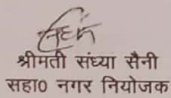 श्रीमती संध्या सैनी
सहा0 नगर नियोजक